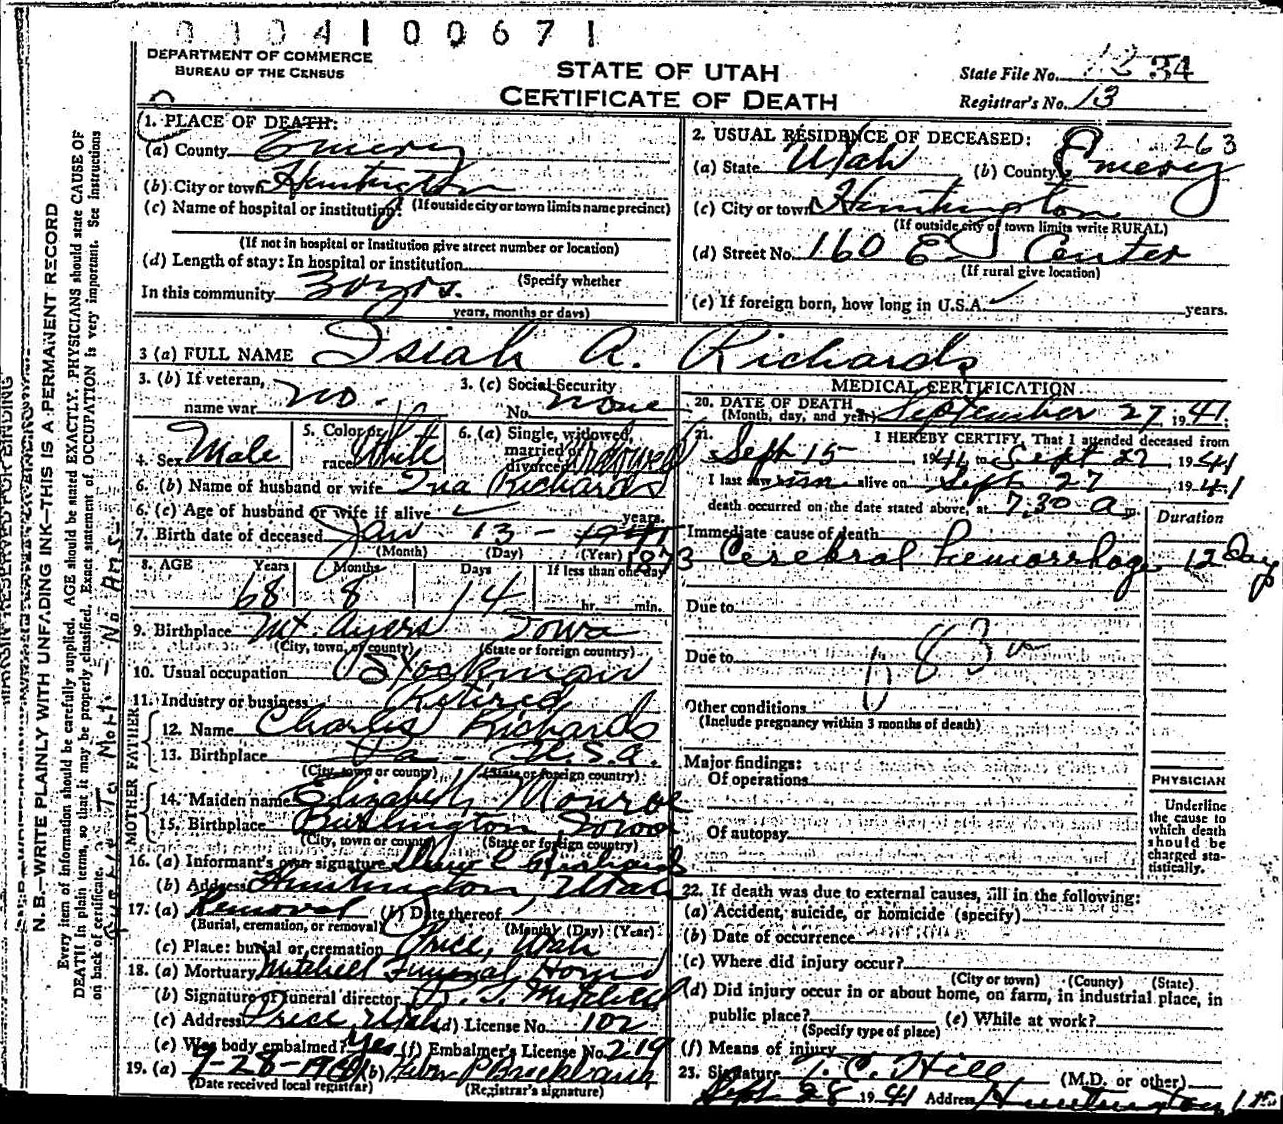 0004100671
DEPARTMENT OF COMMERCE
BUREAU OF THE CENSUS
STATE OF UTAH
CERTIFICATE OF DEATH
State File No. 12 34
Registrar's No. 13
1. PLACE OF DEATH:
(a) County Emery
(b) City or town Huntington
(If outside city or town limits name precinct)
(c) Name of hospital or institution:
(If not in hospital or institution give street number or location)
(d) Length of stay: In hospital or institution
(Specify whether
In this community 30 yrs.
years, months or days)
2. USUAL RESIDENCE OF DECEASED: 263
(a) State Utah (b) County Emery
(c) City or town Huntington
(If outside city or town limits write RURAL)
(d) Street No. 160 E Center
(If rural give location)
(e) If foreign born, how long in U.S.A. years.
3 (a) FULL NAME Isiah A. Richards
3. (b) If veteran, name war no.
3. (c) Social Security No. none
4. Sex Male
5. Color or race White
6. (a) Single, widowed, married or divorced Widowed
6. (b) Name of husband or wife Ina Richards
6. (c) Age of husband or wife if alive years
7. Birth date of deceased Jan 13 - 1941 1873
(Month) (Day) (Year)
8. AGE Years Months Days If less than one day
68 8 14 hr. min.
9. Birthplace Mt. Ayers Iowa
(City, town, or county) (State or foreign country)
10. Usual occupation Stockman
11. Industry or business Retired
FATHER
12. Name Charles Richards
13. Birthplace Pa - U.S.a.
(City, town or county) (State or foreign country)
MOTHER
14. Maiden name Elizabeth Monroe
15. Birthplace Burlington Iowa
(City, town or county) (State or foreign country)
16. (a) Informant's own signature Richards
(b) Address Huntington Utah
17. (a) Removal (b) Date thereof
(Burial, cremation, or removal) (Month) (Day) (Year)
(c) Place: burial or cremation Price, Utah
18. (a) Mortuary Mitchell Funeral Home
(b) Signature of funeral director Mitchell
(c) Address Price, Utah (d) License No. 102
(e) Was body embalmed? Yes (f) Embalmer's License No. 219
19. (a) 9-28-19 (b) P Brockbank
(Date received local registrar) (Registrar's signature)
MEDICAL CERTIFICATION
20. DATE OF DEATH
(Month, day, and year) September 27, 1941
21. I HEREBY CERTIFY, That I attended deceased from
Sept 15, 1941, to Sept 27, 1941
I last saw him alive on Sept 27 1941
death occurred on the date stated above, at 7.30 a m.
Duration
Immediate cause of death
Cerebral hemorrhage 12 Day
Due to
Due to
83
Other conditions
(Include pregnancy within 3 months of death)
Major findings:
Of operations
Of autopsy
PHYSICIAN
Underline
the cause to
which death
should be
charged sta-
tistically.
22. If death was due to external causes, fill in the following:
(a) Accident, suicide, or homicide (specify)
(b) Date of occurrence
(c) Where did injury occur?
(City or town) (County) (State)
(d) Did injury occur in or about home, on farm, in industrial place, in
public place? (e) While at work?
(Specify type of place)
(f) Means of injury
23. Signature T. C. Hill (M.D. or other)
Sept 28 1941 Address Huntington
MARGIN RESERVED FOR BINDING
N. B.—WRITE PLAINLY WITH UNFADING INK—THIS IS A PERMANENT RECORD
Every item of information should be carefully supplied. AGE should be stated EXACTLY. PHYSICIANS should state CAUSE OF
DEATH in plain terms, so that it may be properly classified. Exact statement of OCCUPATION is very important. See instructions
on back of certificate.